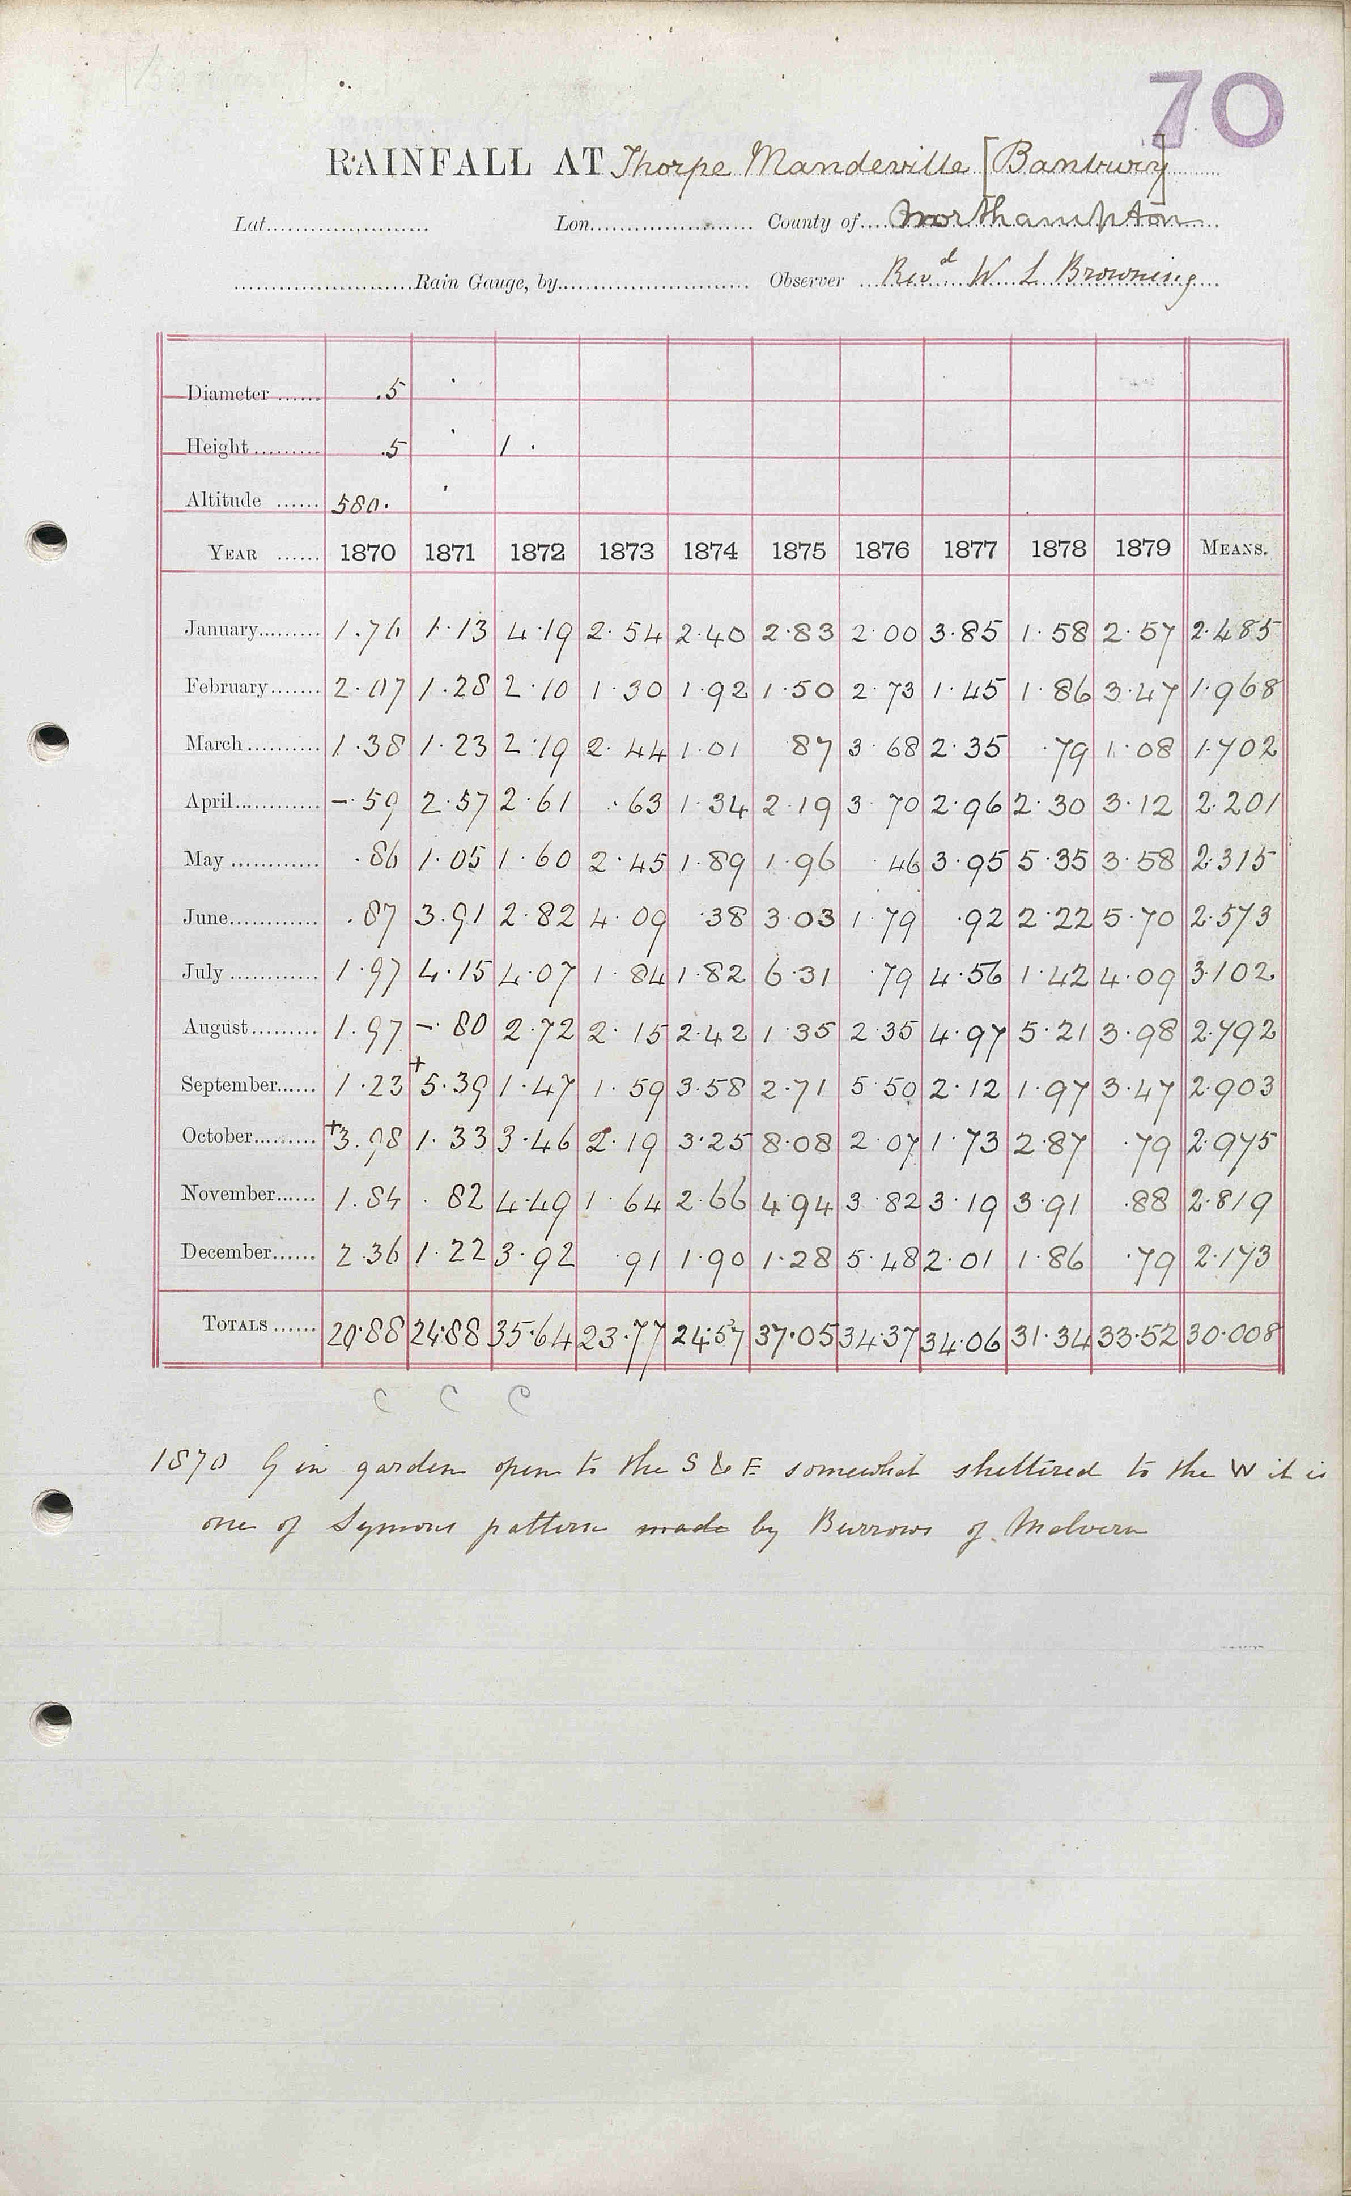 70
RAINFALL AT Thorpe Mandeville [Banbury]
Lat. Lon. County of Northampton
Rain Gauge, by Observer Revd W L Browning
Diameter .5
Height .5 1
Altitude 580.
YEAR 1870 1871 1872 1873 1874 1875 1876 1877 1878 1879 MEANS.
January 1.76 1.13 4.19 2.54 2.40 2.83 2.00 3.85 1.58 2.57 2.485
February 2.07 1.28 2.10 1.30 1.92 1.50 2.73 1.45 1.86 3.47 1.968
March 1.38 1.23 2.19 2.44 1.01 .87 3.68 2.35 .79 1.08 1.702
April -.59 2.57 2.61 .63 1.34 2.19 3.70 2.96 2.30 3.12 2.201
May .86 1.05 1.60 2.45 1.89 1.96 .46 3.95 5.35 3.58 2.315
June .87 3.91 2.82 4.09 .38 3.03 1.79 .92 2.22 5.70 2.573
July 1.97 4.15 4.07 1.84 1.82 6.31 .79 4.56 1.42 4.09 3.102
August 1.97 -.80 2.72 2.15 2.42 1.35 2.35 4.97 5.21 3.98 2.792
September 1.23 +5.39 1.47 1.59 3.58 2.71 5.50 2.12 1.97 3.47 2.903
October +3.98 1.33 3.46 2.19 3.25 8.08 2.07 1.73 2.87 .79 2.975
November 1.84 .82 4.49 1.64 2.66 4.94 3.82 3.19 3.91 .88 2.819
December 2.36 1.22 3.92 .91 1.90 1.28 5.48 2.01 1.86 .79 2.173
TOTALS 20.88 24.88 35.64 23.77 24.57 37.05 34.37 34.06 31.34 33.52 30.008
C C C
1870 G in garden open to the S & E somewhat sheltered to the W it is
one of Symons pattern made by Burrows of Malvern